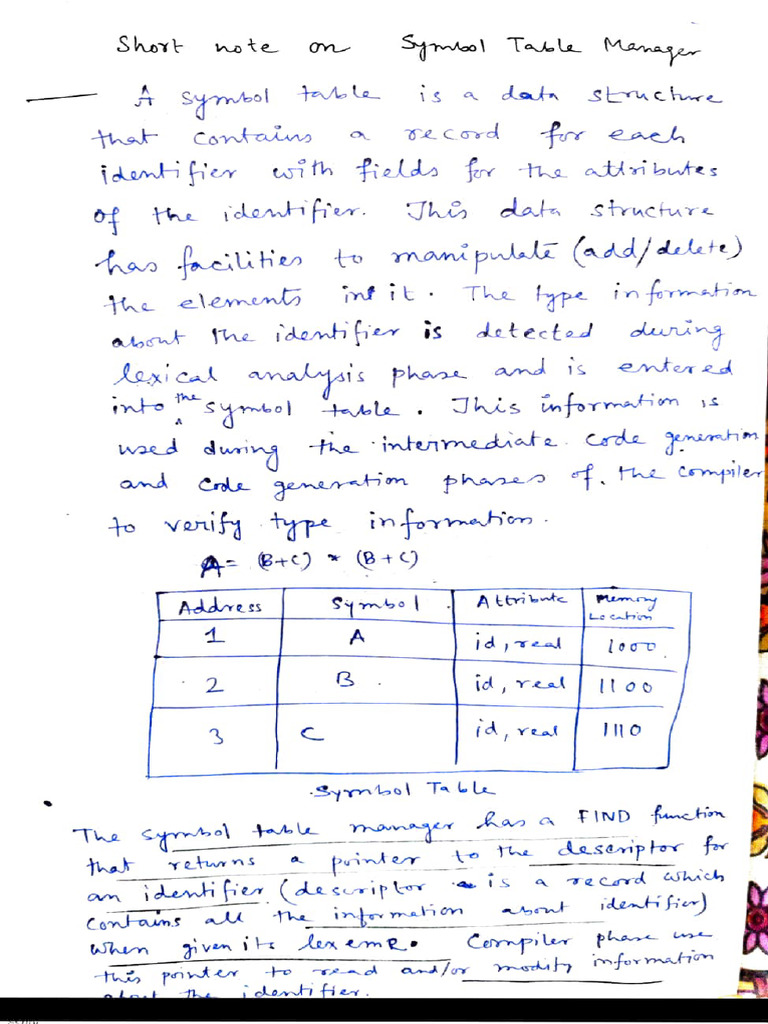 Short note on Symbol Table Manager
A symbol table is a data structure
that contains a record for each
identifier with fields for the attributes
of the identifier. This data structure
has facilities to manipulate (add/delete)
the elements in it. The type information
about the identifier is detected during
lexical analysis phase and is entered
into the symbol table. This information is
used during the intermediate code generation
and code generation phases of the compiler
to verify type information.
A = (B+C) * (B+C)
Address Symbol Attribute Memory Location
1 A id, real 1000
2 B id, real 1100
3 C id, real 1110
Symbol Table
The symbol table manager has a FIND function
that returns a pointer to the descriptor for
an identifier (descriptor is a record which
contains all the information about identifier)
when given its lexeme. Compiler phase use
this pointer to read and/or modify information
about the identifier.